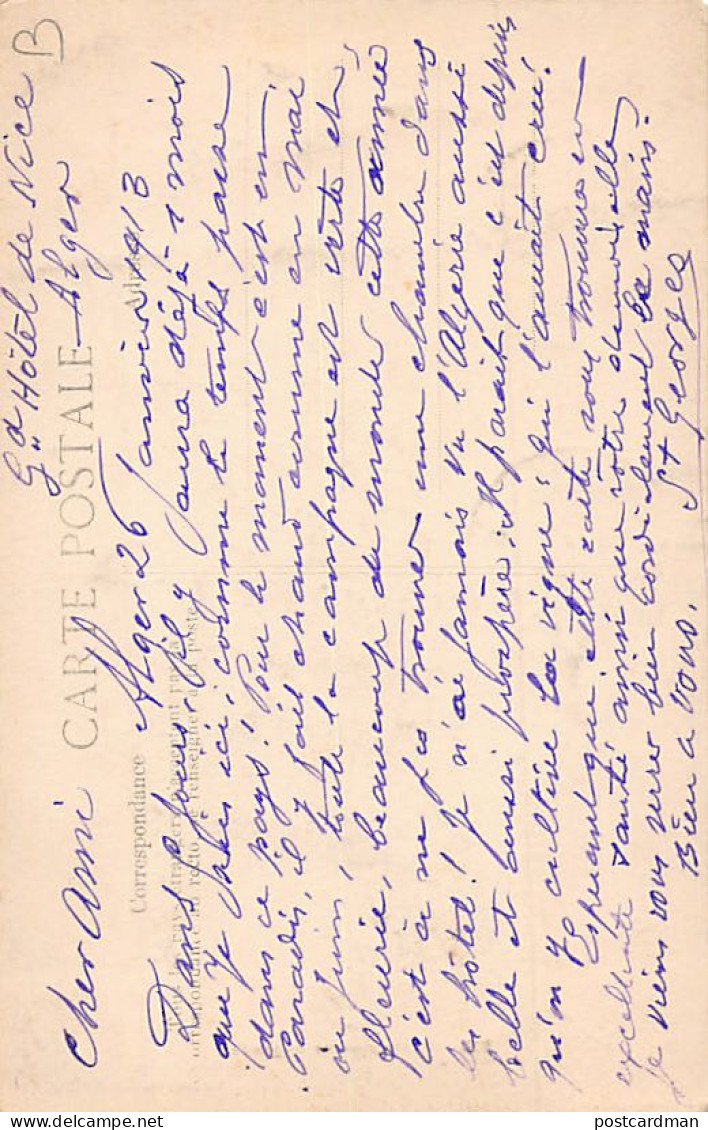 B
Gd Hôtel de Nice
Alger
CARTE POSTALE
Correspondance
Cher Ami
Alger 26 Janvier 1913
Dans 4 jours il y aura déjà 1 mois
que je suis ici, comme le temps passe
dans ce pays! Pour le moment c'est un
Paradis, il y fait chaud comme en mai
ou juin, toute la campagne est verte et
fleurie, beaucoup de monde cette année
c'est à ne pas trouver une chambre dans
les hôtel! Je n'ai jamais vu l'Algérie aussi
belle et aussi prospère, il parait que c'est depuis
qu'on y cultive la vigne, qui l'aurait cru!
Espérant que cette carte vous trouvera en
excellente santé ainsi que votre demoiselle
je viens vous serrer bien cordialement les mains.
Bien à vous.
St Georges
postcardman